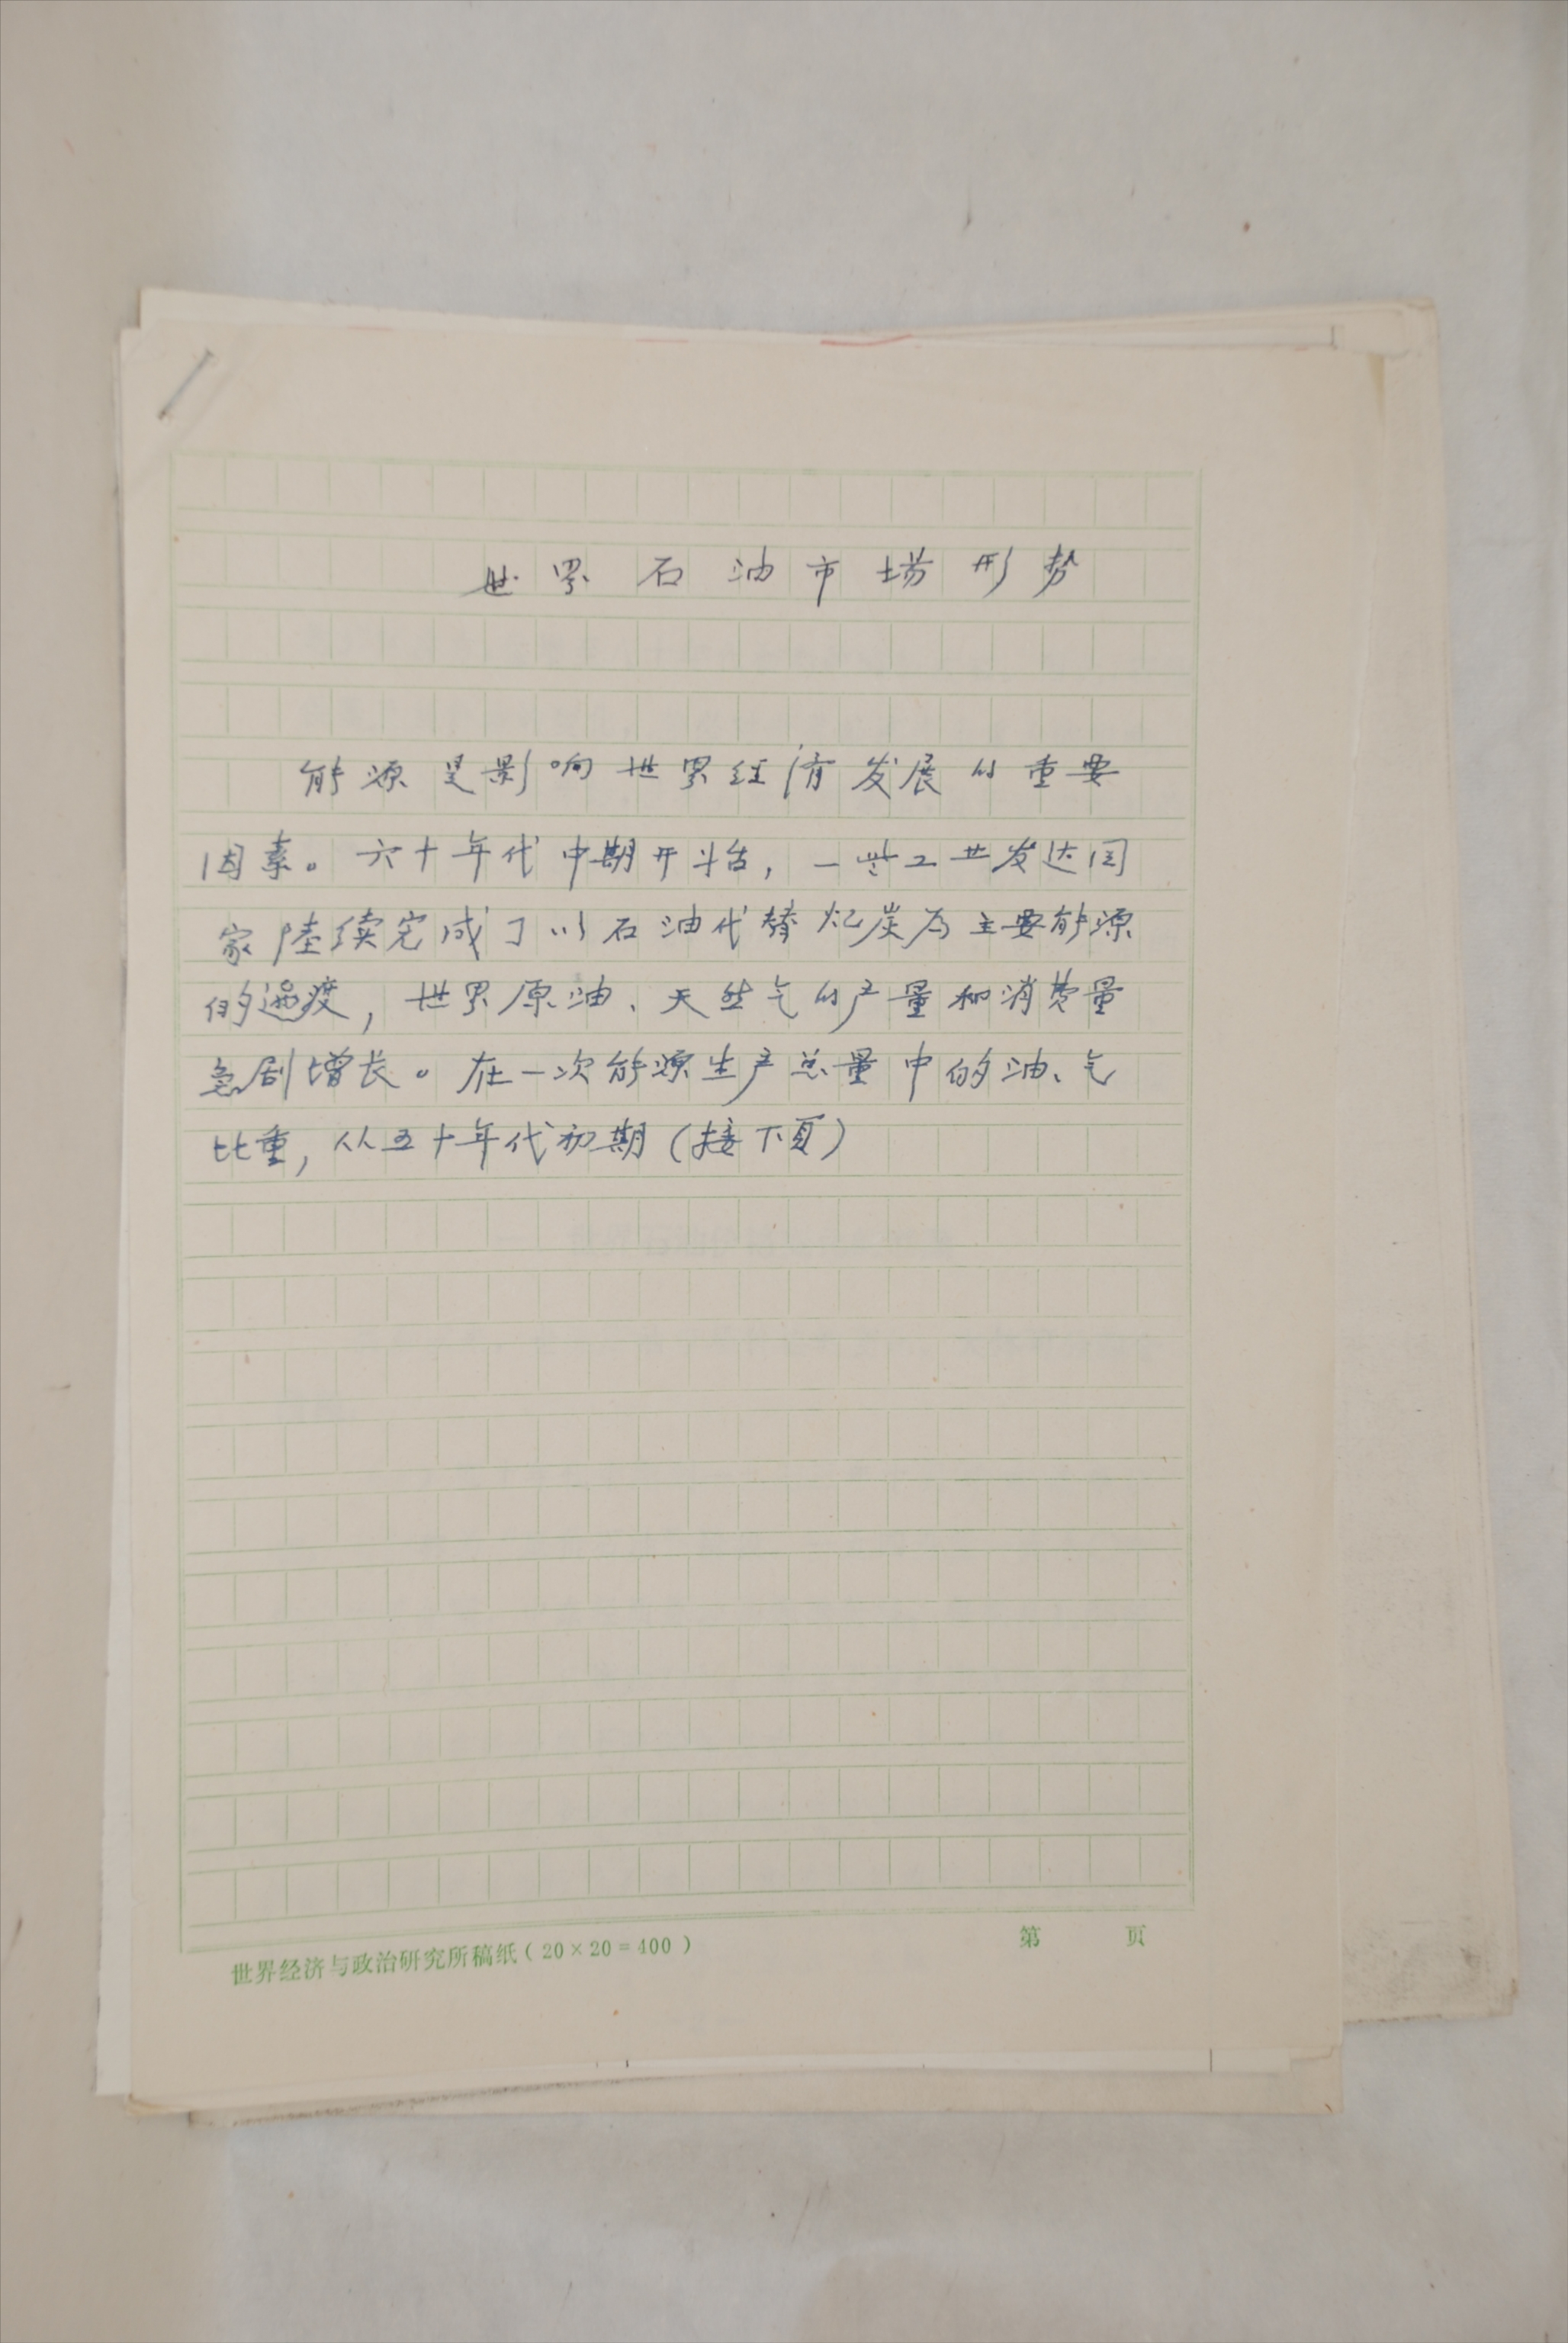 世界石油市场形势
能源是影响世界经济发展的重要
因素。六十年代中期开始，一些工业发达国
家陆续完成了以石油代替煤炭为主要能源
的过渡，世界原油、天然气的产量和消费量
急剧增长。在一次能源生产总量中的油、气
比重，从五十年代初期（接下页）
世界经济与政治研究所稿纸（20×20=400） 第 页